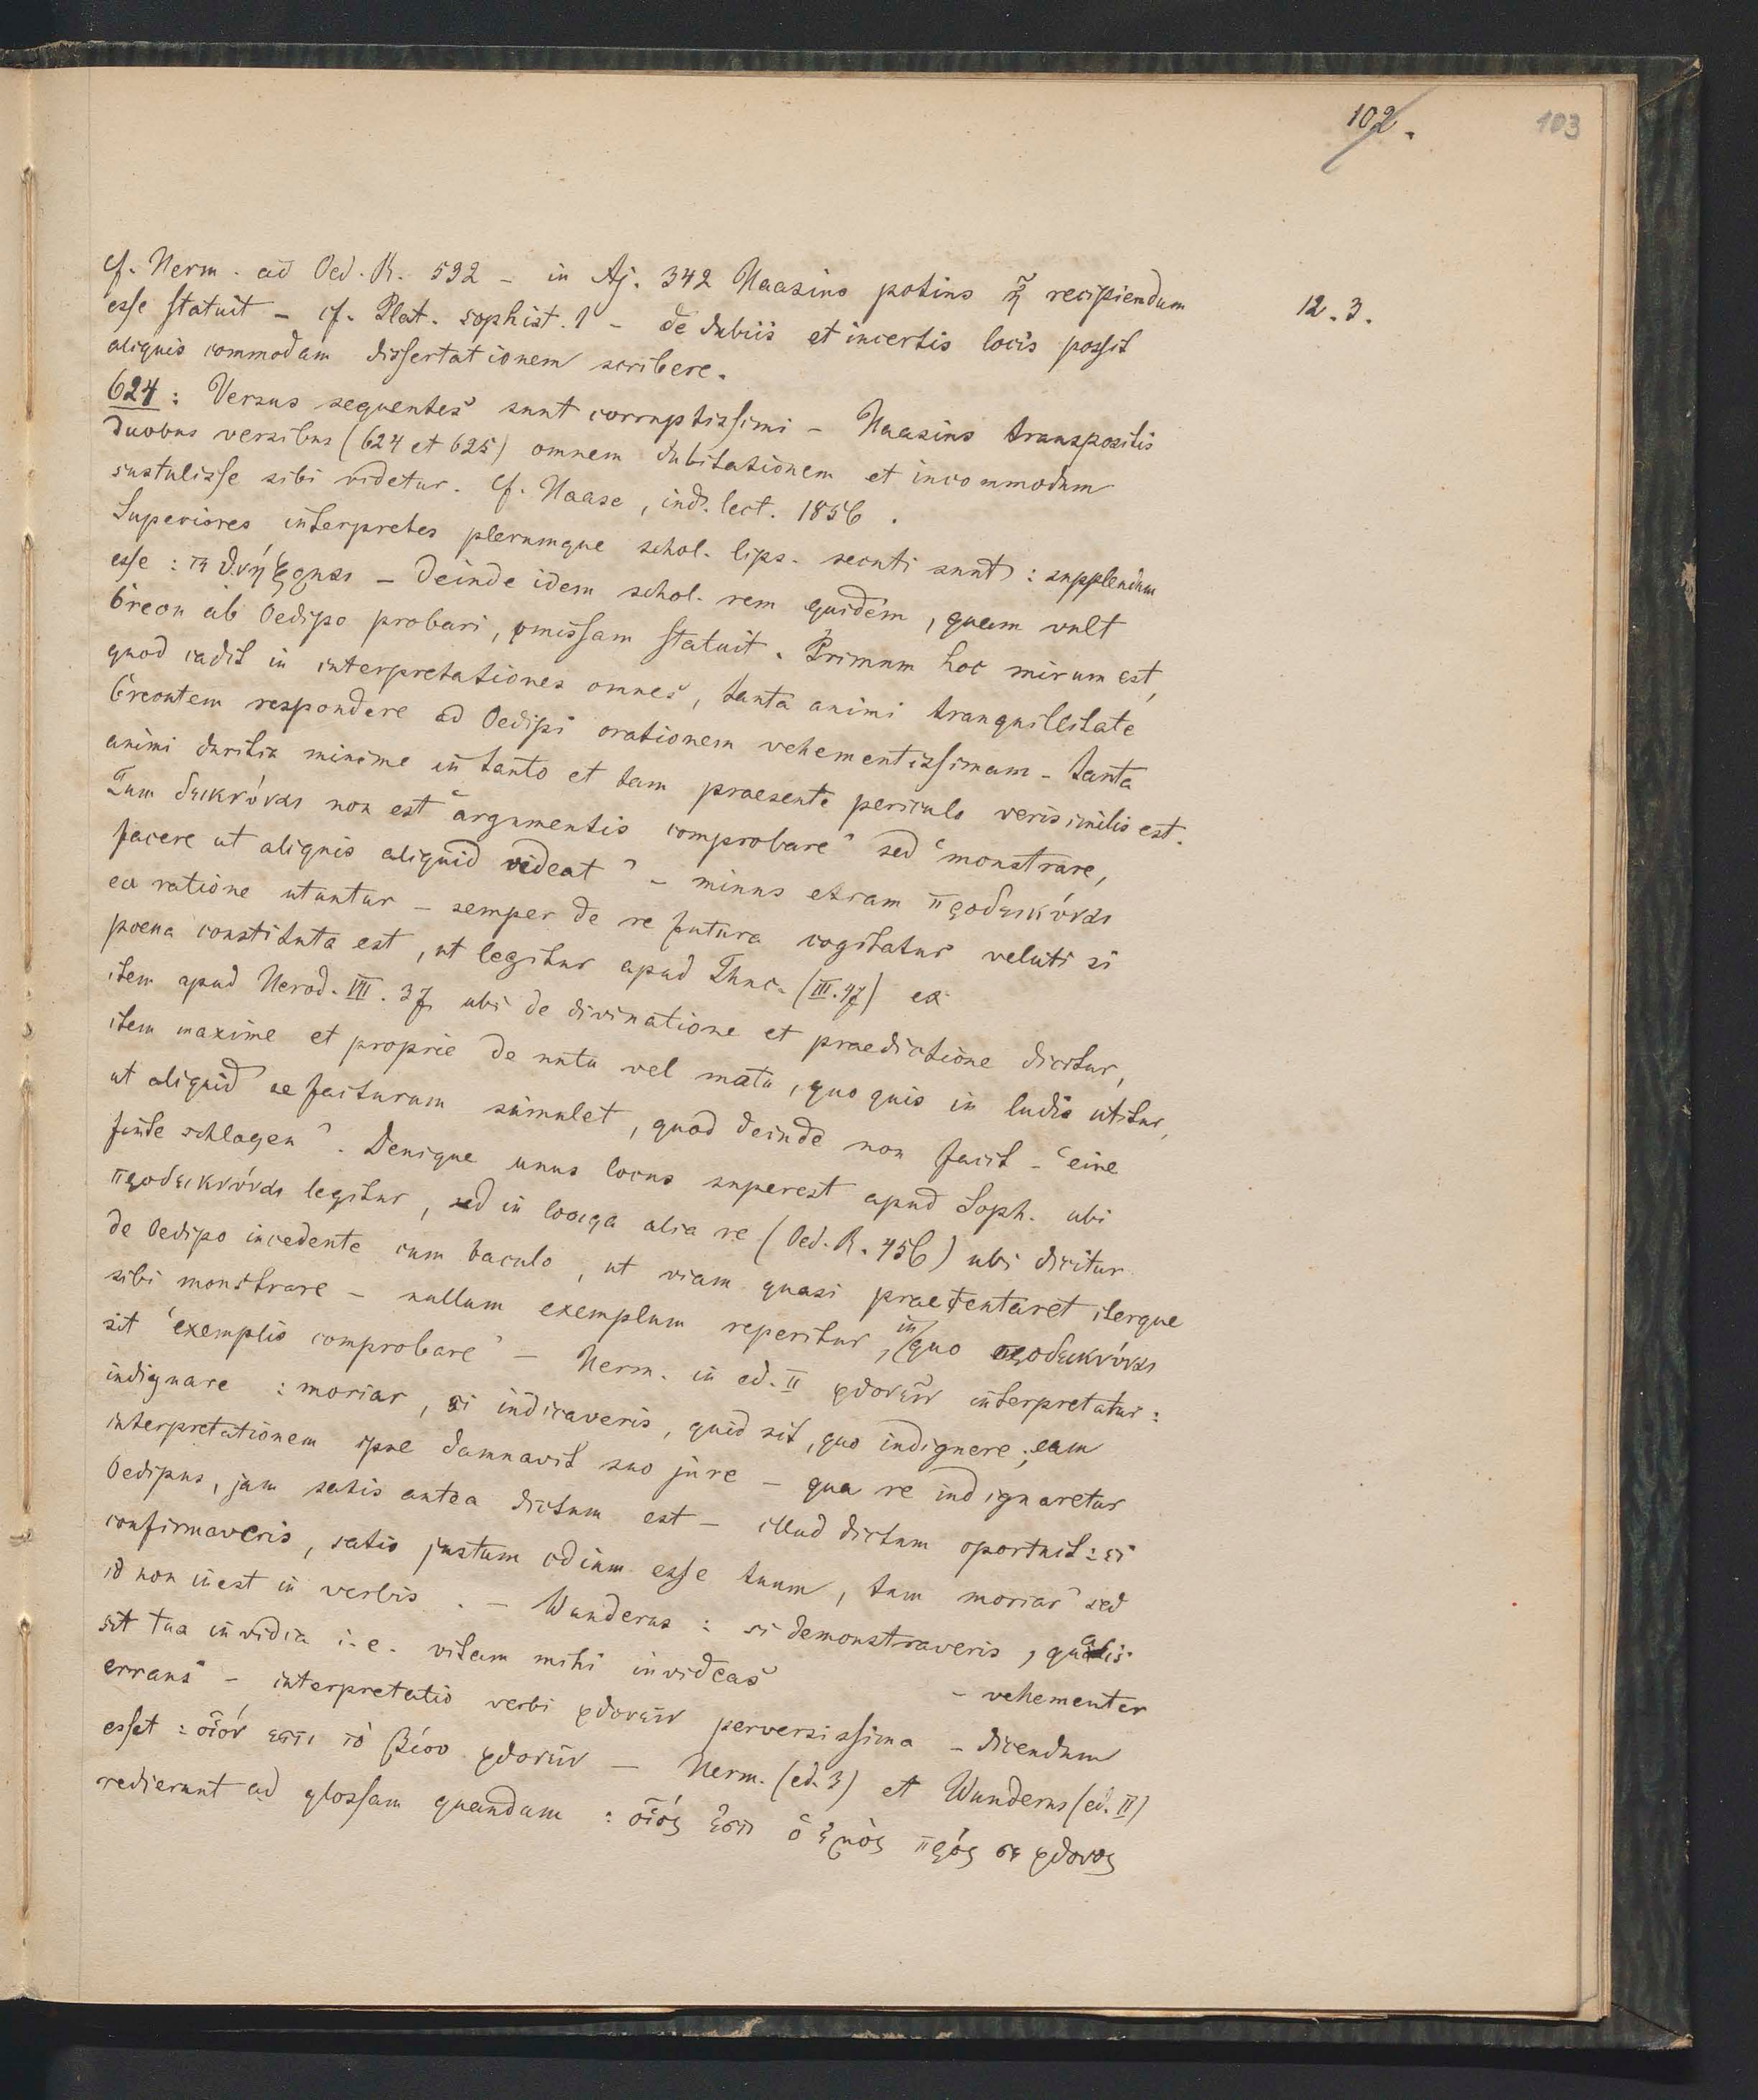 102.
103
cf. Herm. ad Oed. R. 592 – in Aj. 342 Haasius potius ἢ recipiendum
12. 3.
esse statuit – cf. Plat. sophist. 1 – de dubiis et incertis locis possit
aliquis commodam dissertationem scribere.
624: Versus sequentes sunt corruptissimi – Haasius transpositis
duobus versibus (624 et 625) omnem dubitationem et incommodum
sustulisse sibi videtur. cf. Haase, ind. lect. 1856.
Superiores interpretes plerumque schol. lips. secuti sunt: supplendum
esse: – deinde idem schol. rem quidem, quam vult
Creon ab Oedipo probari, omissam statuit. Primum hoc mirum est,
quod cadit in interpretationes omnes, tanta animi tranquillitate
Creontem respondere ad Oedipi orationem vehementissimam – tanta
animi duritia minime in tanto et tam praesente periculo verisimilis est.
Tum δεικνύναι non est "argumentis comprobare" sed "monstrare,
facere ut aliquis aliquid videat" – minus etiam προδεικνύναι
ea ratione utuntur – semper de re futura cogitatur veluti si
poena constituta est, ut legitur apud Thuc. (III. 47) et
item apud Herod. VII. 37, ubi de divinatione et praedictione dicitur,
item maxime et proprie de nutu vel motu, quo quis in ludis utitur,
ut aliquid se facturum simulet, quod deinde non facit – "eine
finte schlagen". Denique unus locus superest apud Soph. ubi
προδεικνύναι legitur, sed in longa alia re (Oed. R. 456) ubi dicitur
de Oedipo incedente cum baculo, ut viam quasi praetentaret iterque
sibi monstrare – nullum exemplum reperitur, in quo προδεικνύναι
sit "exemplis comprobare" – Herm. in ed. II φθονεῖν interpretatur:
indignare: moriar, si indicaveris, quid sit, quo indignere; eam
interpretationem ipse damnavit suo jure – qua re indignaretur
Oedipus, jam satis antea dictum est – illud dictum oportuit: si
confirmaveris, satis justum odium esse tuum, tum moriar" sed
id non inest in verbis. – Wunderus: si demonstraveris, qualis
sit tua invidia i. e. vitam mihi invideas – vehementer
errans – interpretatio verbi φθονεῖν perversissima – dicendum
esset: οἷόν ἐστι τὸ βίου φθονεῖν – Herm. (ed. 3) et Wunderus (ed. II)
redierunt ad glossam quandam: οἷός ἐστι ὁ ἐμὸς πρός σε φθόνος